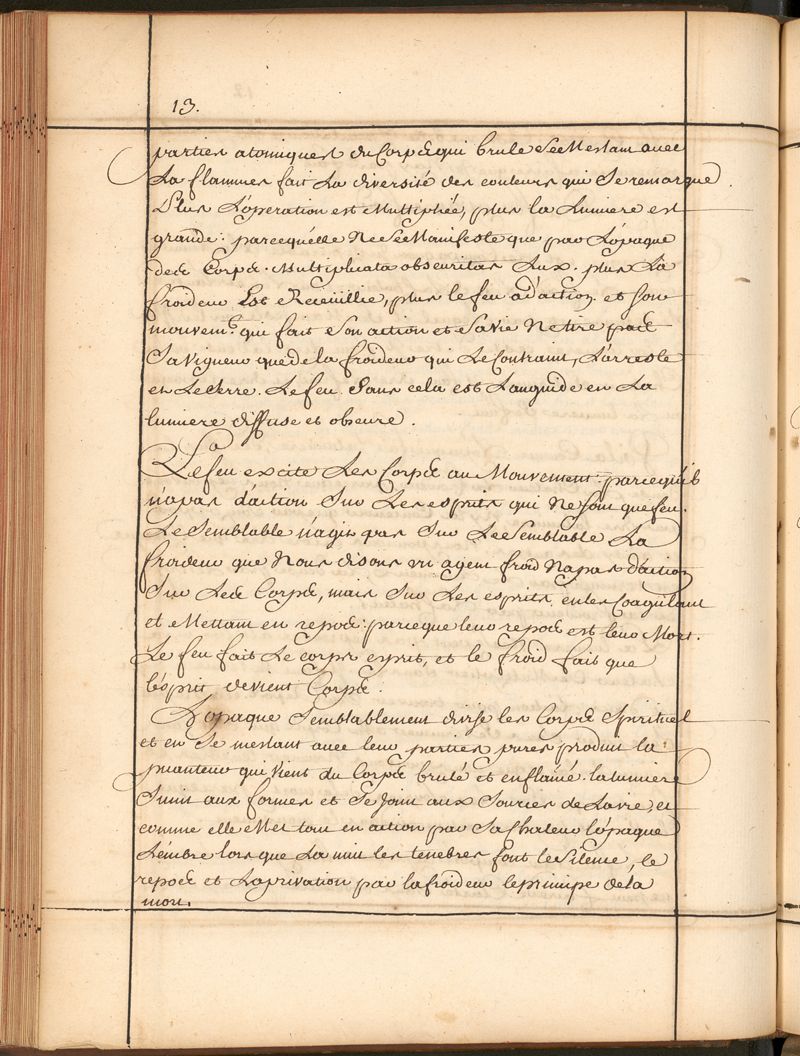 13.
parties atomiques du Corps qui brule se Meslant avec
La flammes fait La diversité des couleurs qui se remarque.
Plus L'operation est Multipliée, plus la Lumiere est
grande: parcequ'elle Ne se Manifeste que par L'opaque
des Corps. Multiplicata obscuritas Lux. plus La
froideur Est Recüeillie, plus le feu a d'action. et son
mouvem.t qui fait son action et sa vie Ne tire pas
sa vigueur que de la froideur qui Le Contraint, L'arreste
et Le serre. Le feu sans cela est Languide en La
lumiere diffuse et obscure.
Le feu excite Les Corps au Mouvement: parcequ'il
n'a pas d'action sur Les esprits qui Ne sont que feu.
Le semblable n'agit pas sur Le semblable La
froideur que Nous disons un agent froid N'a pas d'action
sur Les Corps, mais sur Les esprits, en les Coagulant
et Mettant en repos: parceque leur repos est leur Mort.
Le feu fait Le corps esprit, et le froid fait que
l'esprit devient Corps.
L'opaque semblablement divise les Corps spirituel
et en se meslant avec leur parties pures produit la
puanteur qui vient du Corps brulé et enflamé. la lumiere
s'unit aux formes et se joint aux sources de La vie, et
comme elle Met tout en action par sa Chaleur l'opaque
L'ombre lors que La nuit les tenebres font le silence, le
repos et La privation par la froideur le principe de la
mort.